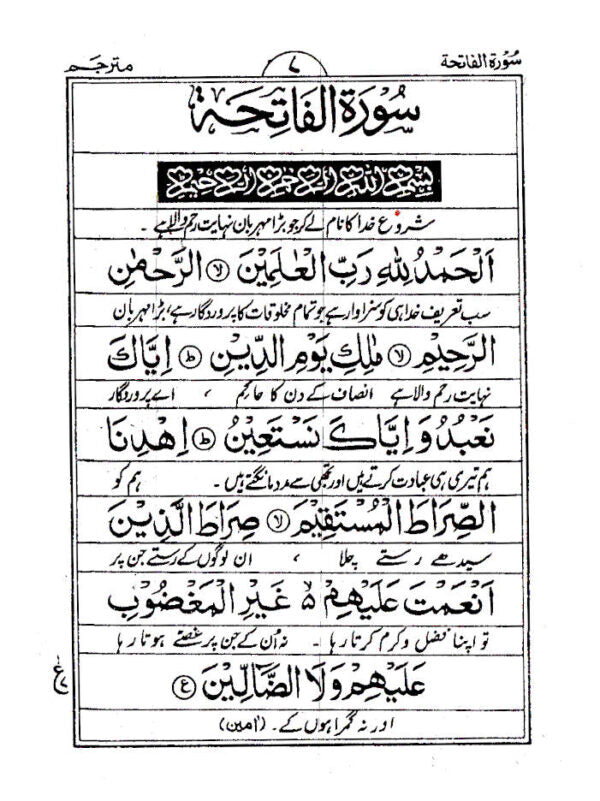 سُوْرَةُ الفَاتِحَة
۷
مترجم
سُوْرَةُ الْفَاتِحَةِ
بِسْمِ اللّٰهِ الرَّحْمٰنِ الرَّحِيْمِ
شروع خدا کا نام لے کر جو بڑا مہربان نہایت رحم والا ہے ۔
اَلْحَمْدُ لِلّٰهِ رَبِّ الْعٰلَمِيْنَ ۙ الرَّحْمٰنِ
سب تعریف خدا ہی کو سزاوار ہے جو تمام مخلوقات کا پروردگار ہے، بڑا مہربان
الرَّحِيْمِ ۙ مٰلِكِ يَوْمِ الدِّيْنِ ؕ اِيَّاكَ
نہایت رحم والا ہے انصاف کے دن کا حاکم ، اے پروردگار
نَعْبُدُ وَ اِيَّاكَ نَسْتَعِيْنُ ؕ اِهْدِنَا
ہم تیری ہی عبادت کرتے ہیں اور تجھی سے مدد مانگتے ہیں ۔ ہم کو
الصِّرَاطَ الْمُسْتَقِيْمَ ۙ صِرَاطَ الَّذِيْنَ
سیدھے رستے چلا ، ان لوگوں کے رستے جن پر
اَنْعَمْتَ عَلَيْهِمْ ۙ۵ غَيْرِ الْمَغْضُوْبِ
تو اپنا فضل و کرم کرتا رہا ۔ نہ اُن کے جن پر غصّے ہوتا رہا
عَلَيْهِمْ وَلَا الضَّالِّيْنَ ع
اور نہ گمراہوں کے ۔ (اٰمین)